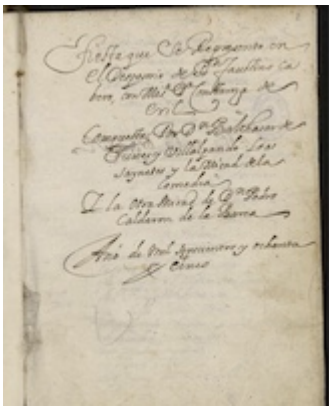 Fiesta que Se Represento en
el Desposorio de Dn Faustino Ca
bero, con Mel. Da Conttanza de
Eril
Compuesta Por Dn Balthasar de
Funes y Villalpando Loas
Saynetes y la Mitad de la
Comedia
I la otra Mitad de Dn Pedro
Calderon de la Barca
Año de Mil Seiscientos y ochenta
y Cinco